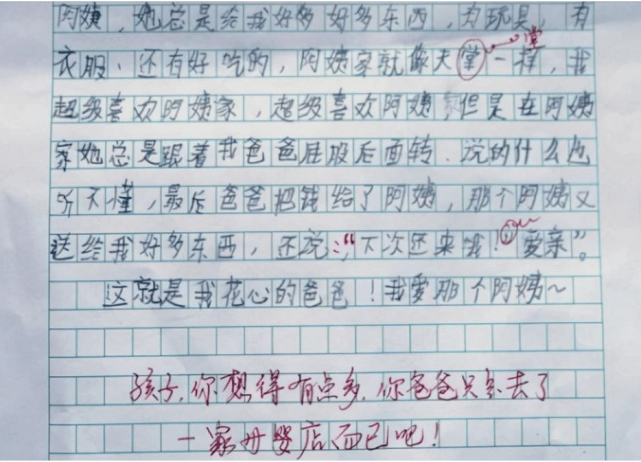 阿姨,她总是给我好多好多东西,为玩具,有
衣服、还有好吃的,阿姨家就像天堂一样,我
堂
超级喜欢阿姨家,超级喜欢阿姨,但是在阿姨
家她总是跟着我爸爸屁股后面转.说的什么也
听不懂,最后爸爸把钱给了阿姨,那个阿姨又
送给我好多东西,还说:“下次还来哦!爱亲”。
这就是我花心的爸爸!我爱那个阿姨~
孩子,你想得有点多,你爸爸只是去了
一家母婴店而已吧!